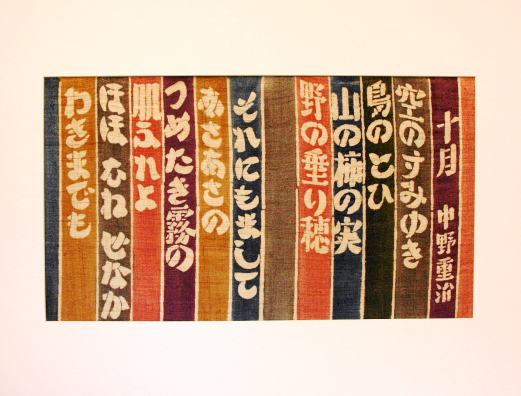 十月 中野重治
空のすみゆき
鳥のとひ
山の柿の実
野の垂り穂
それにもまして
あさあさの
つめたき霧の
肌ふれよ
ほほ むね せなか
わきまでも